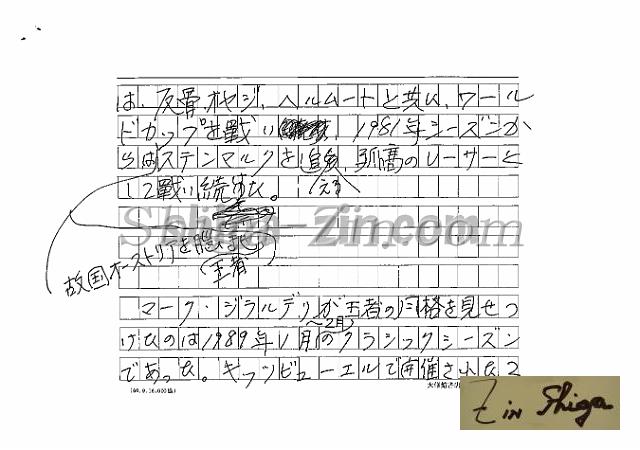 は、反骨オヤジ、ヘルムートと共に、ワール
ドカップを戦い、1981年シーズンか
らはステンマルクを追う
える
孤高のレーサーと
して戦い続けた。
Shiga-Zin.com
故国オーストリアを
王者
マーク・ジラルデリが王者の風格を見せつ
〜2月
けたのは1989年1月のクラシックシーズン
であった。キッツビューエルで開催された2
Z in Shiga